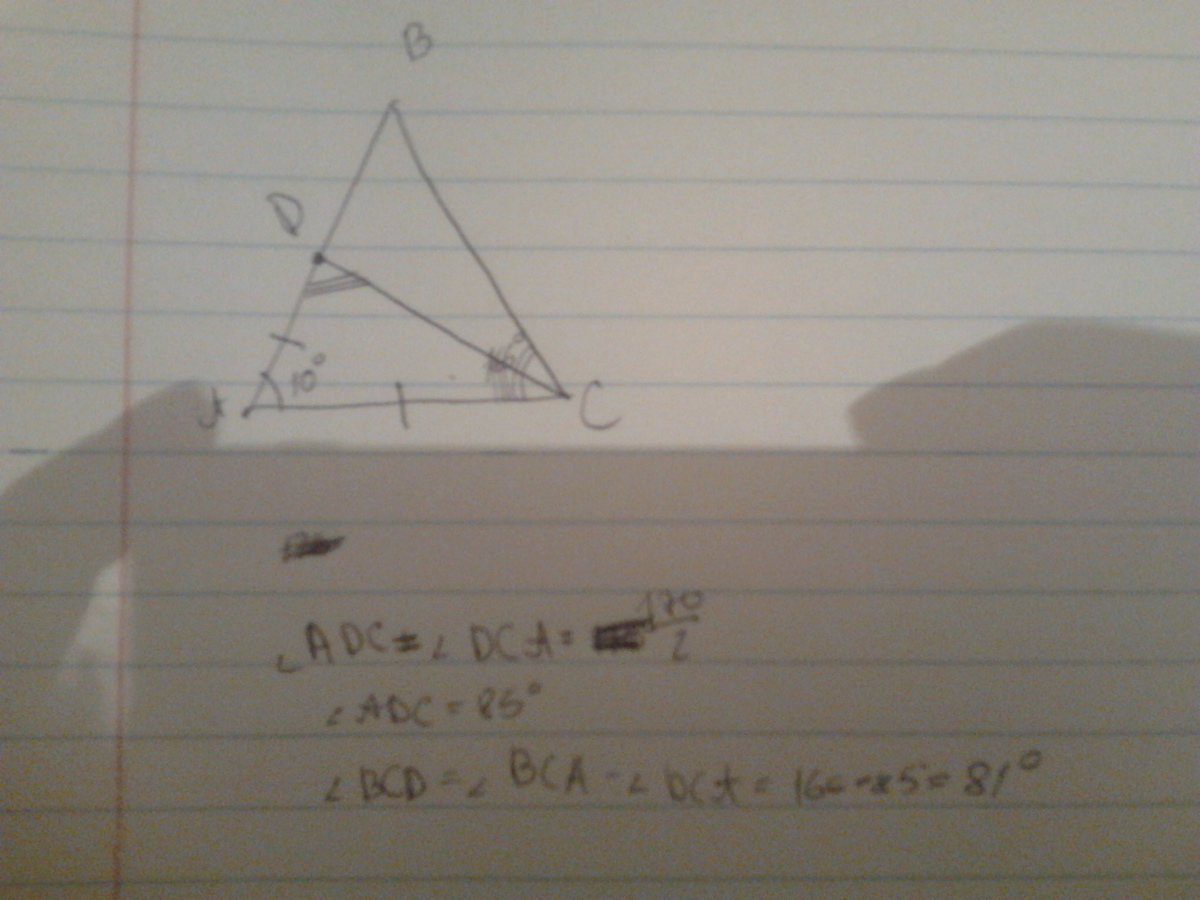 B
D
10°
A
C
∠ADC = ∠DCA = 170/2
∠ADC = 85°
∠BCD = ∠BCA - ∠DCA = 166-85 = 81°